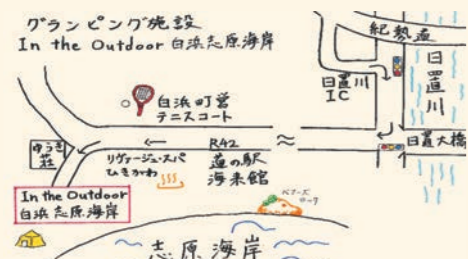 グランピング施設
In the Outdoor 白浜志原海岸
紀勢道
日置川
日置川
IC
白浜町営
テニスコート
日置大橋
ゆうき
荘
リヴァージュ・スパ
ひきがわ
R42
道の駅
海来館
In the Outdoor
白浜志原海岸
志原海岸